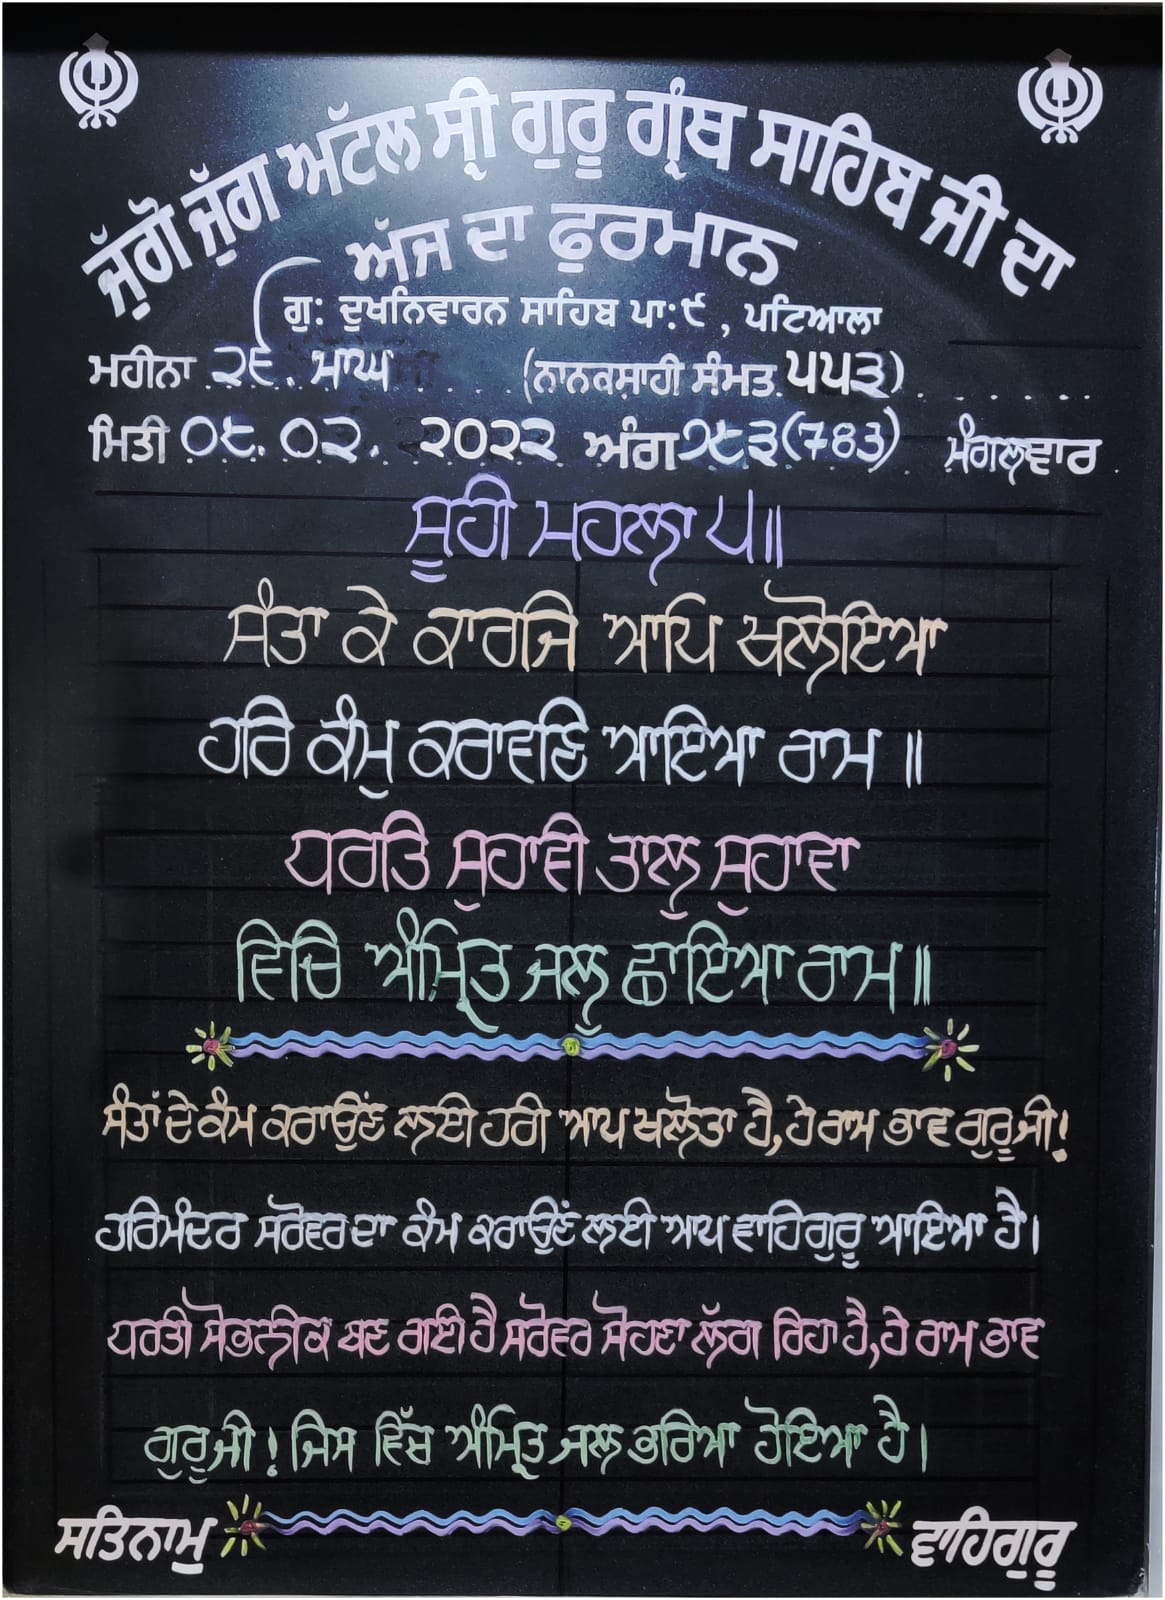 ਜੁੱਗੋ ਜੁੱਗ ਅਟੱਲ ਸ੍ਰੀ ਗੁਰੂ ਗ੍ਰੰਥ ਸਾਹਿਬ ਜੀ ਦਾ
ਅੱਜ ਦਾ ਫੁਰਮਾਨ
ਗੁ: ਦੁਖਨਿਵਾਰਨ ਸਾਹਿਬ ਪਾ:੯, ਪਟਿਆਲਾ
ਮਹੀਨਾ ੨੬. ਮਾਘ (ਨਾਨਕਸ਼ਾਹੀ ਸੰਮਤ ੫੫੩)
ਮਿਤੀ ੦੮.੦੨. ੨੦੨੨ ਅੰਗ ੭੮੩(783) ਮੰਗਲਵਾਰ
ਸੂਹੀ ਮਹਲਾ ੫॥
ਸੰਤਾ ਕੇ ਕਾਰਜਿ ਆਪਿ ਖਲੋਇਆ
ਹਰਿ ਕੰਮੁ ਕਰਾਵਣਿ ਆਇਆ ਰਾਮ ॥
ਧਰਤਿ ਸੁਹਾਵੀ ਤਾਲੁ ਸੁਹਾਵਾ
ਵਿਚਿ ਅੰਮ੍ਰਿਤ ਜਲੁ ਛਾਇਆ ਰਾਮ॥
ਸੰਤਾਂ ਦੇ ਕੰਮ ਕਰਾਉਣ ਲਈ ਹਰੀ ਆਪ ਖਲੋਤਾ ਹੈ, ਹੇ ਰਾਮ ਭਾਵ ਗੁਰੂ ਜੀ!
ਹਰਿਮੰਦਰ ਸਰੋਵਰ ਦਾ ਕੰਮ ਕਰਾਉਣ ਲਈ ਆਪ ਵਾਹਿਗੁਰੂ ਆਇਆ ਹੈ।
ਧਰਤੀ ਸੋਭਨੀਕ ਬਣ ਗਈ ਹੈ ਸਰੋਵਰ ਸੋਹਣਾ ਲੱਗ ਰਿਹਾ ਹੈ, ਹੇ ਰਾਮ ਭਾਵ
ਗੁਰੂ ਜੀ! ਜਿਸ ਵਿੱਚ ਅੰਮ੍ਰਿਤ ਜਲ ਭਰਿਆ ਹੋਇਆ ਹੈ।
ਸਤਿਨਾਮੁ ਵਾਹਿਗੁਰੂ